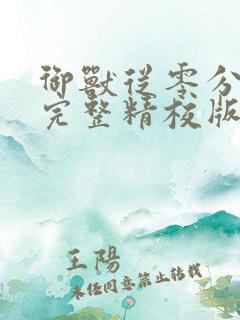 御獸從零分
完整精校版
王陽
未经同意禁止转载